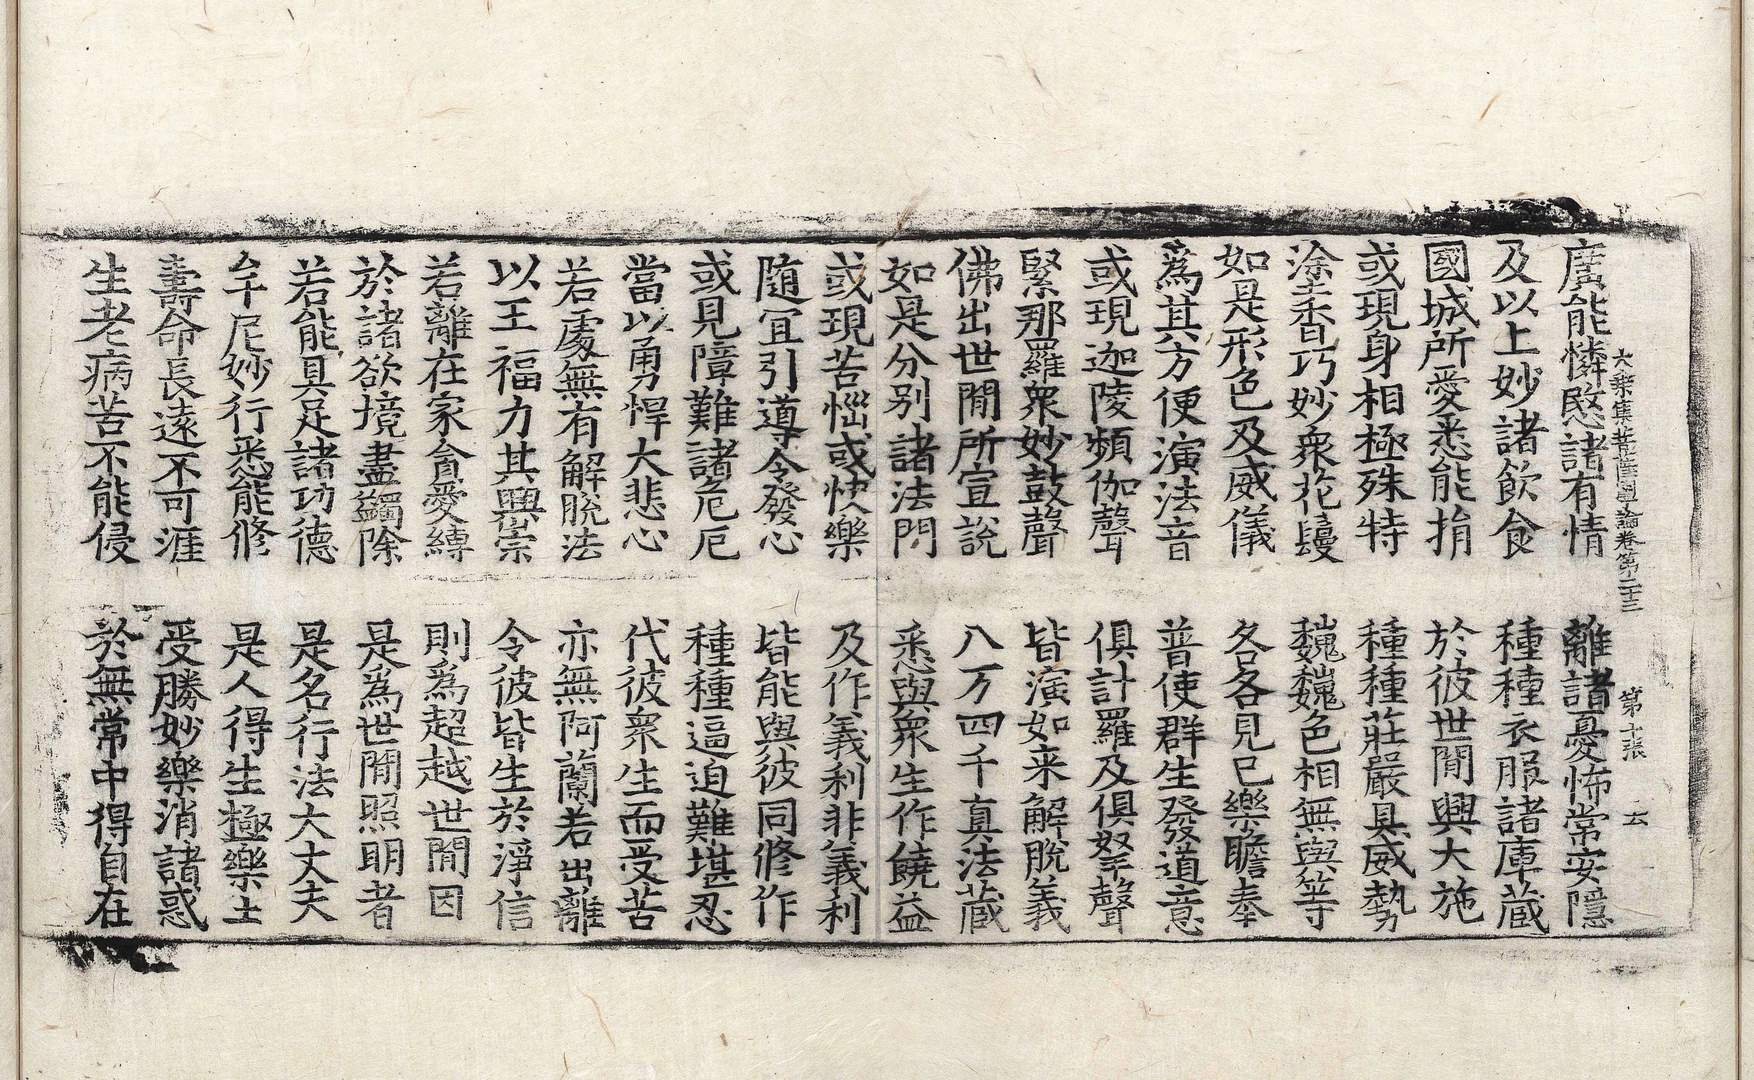 大乘集菩薩學論卷第二十三　第十張　云
廣能憐愍諸有情　離諸憂怖常安隱
及以上妙諸飲食　種種衣服諸庫蔵
國城所愛悉能捐　於彼世間興大施
或現身相極殊特　種種莊嚴具威勢
塗香巧妙衆花鬘　巍巍色相無與等
如是形色及威儀　各各見已樂瞻奉
為其方便演法音　普使群生發道意
或現迦陵頻伽聲　俱計羅及俱拏聲
緊那羅衆妙鼓聲　皆演如来解脫義
佛出世間所宣說　八万四千真法蔵
如是分别諸法門　悉與衆生作饒益
或現苦惱或快樂　及作義利非義利
随冝引導令發心　皆能與彼同修作
或見障難諸危厄　種種逼迫難堪忍
當以勇悍大悲心　代彼衆生而受苦
若處無有解脫法　亦無阿蘭若出離
以王福力其興崇　令彼皆生於淨信
若離在家貪愛縛　則為超越世間因
於諸欲境盡蠲除　是為世間照明者
若能具足諸功德　是名行法大丈夫
牟尼妙行悉能修　是人得生極樂土
壽命長遠不可涯　受勝妙樂消諸惑
生老病苦不能侵　於無常中得自在